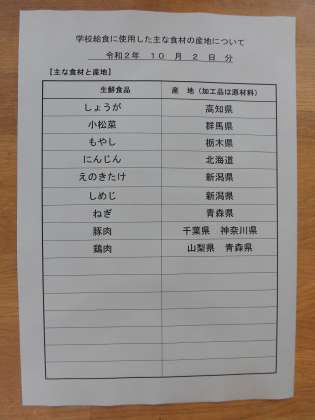 学校給食に使用した主な食材の産地について
令和2年 10 月 2 日 分
【主な食材と産地】
生鮮食品 産 地（加工品は原材料）
しょうが 高知県
小松菜 群馬県
もやし 栃木県
にんじん 北海道
えのきたけ 新潟県
しめじ 新潟県
ねぎ 青森県
豚肉 千葉県 神奈川県
鶏肉 山梨県 青森県